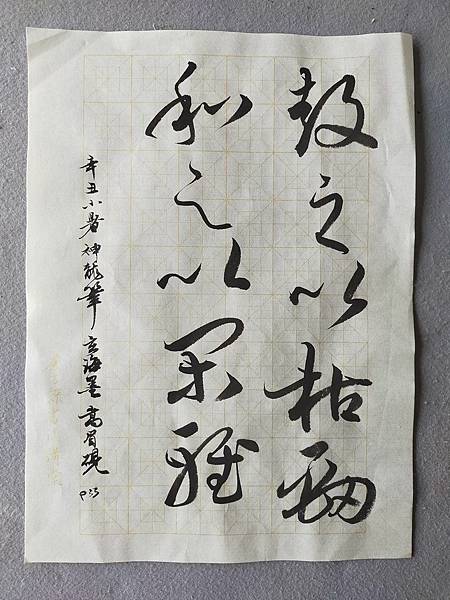 鼓之以枯勁
和之以閑雅
辛丑小暑 神龍筆 玄海墨 高眉硯